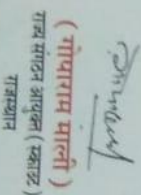 ( गोपाराम माली )
राज्य संगठन आयुक्त ( स्काउट )
राजस्थान